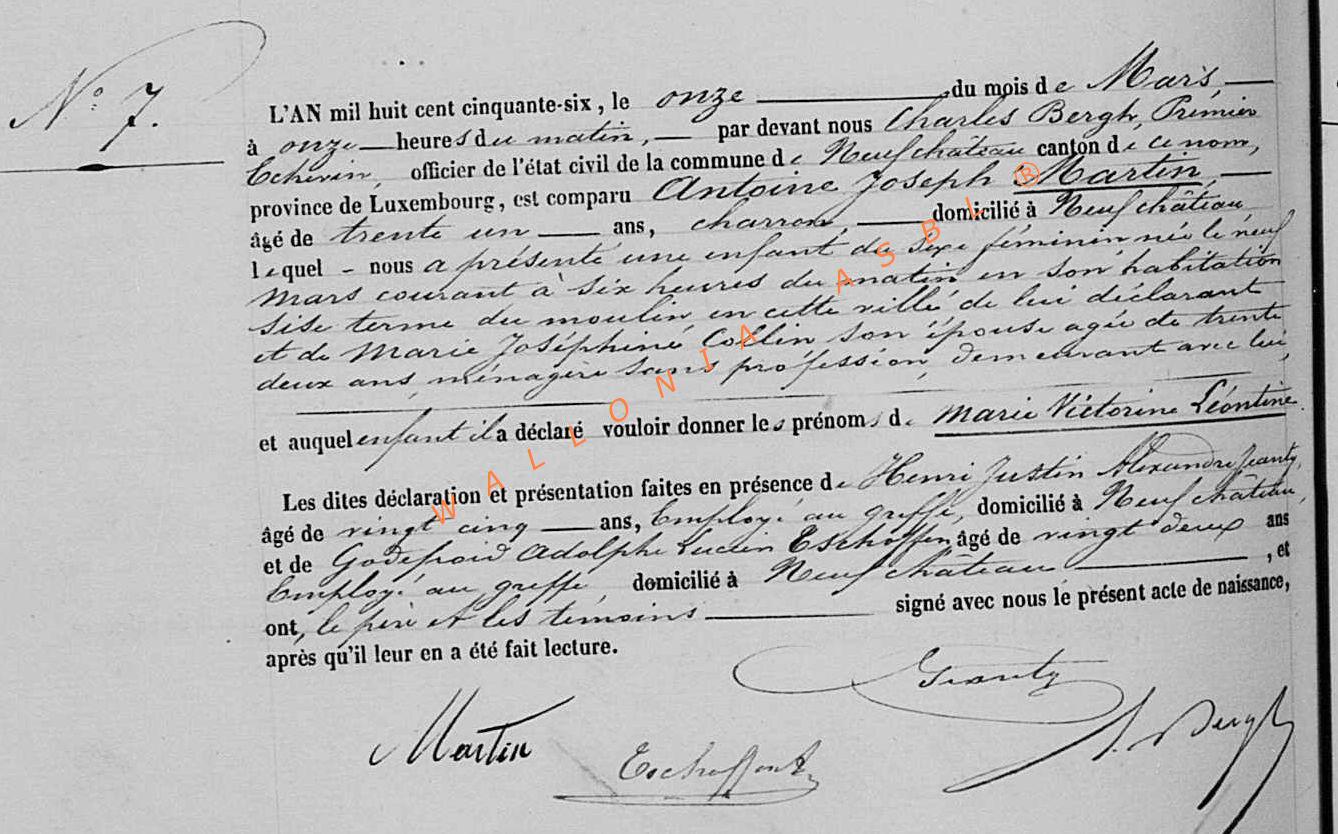 N° 7.
L'AN mil huit cent cinquante-six, le onze du mois de Mars,
à onze heures du matin, par devant nous Charles Bergh, Premier
Echevin, officier de l'état civil de la commune de Neufchâteau canton de ce nom,
province de Luxembourg, est comparu Antoine Joseph Martin,
âgé de trente un ans, charron, domicilié à Neufchâteau
lequel - nous a présenté une enfant du sexe féminin née le neuf
Mars courant à six heures du matin en son habitation
sise terme du moulin en cette ville, de lui déclarant
et de Marie Joséphine Collin son épouse agée de trente
deux ans, ménagère sans profession, demeurant avec lui,
et auquel enfant il a déclaré vouloir donner les prénoms de Marie Victorine Léontine.
Les dites déclaration et présentation faites en présence de Henri Justin Alexandre Jeanty,
âgé de vingt cinq ans, Employé au greffe, domicilié à Neufchâteau,
et de Godefroid Adolphe Lucien Eschoffen âgé de vingt deux ans
Employé au greffe, domicilié à Neufchâteau, et
ont, le père et les témoins signé avec nous le présent acte de naissance,
après qu'il leur en a été fait lecture.
Jeanty
Martin
Bergh
WALLONIA ASBL ®